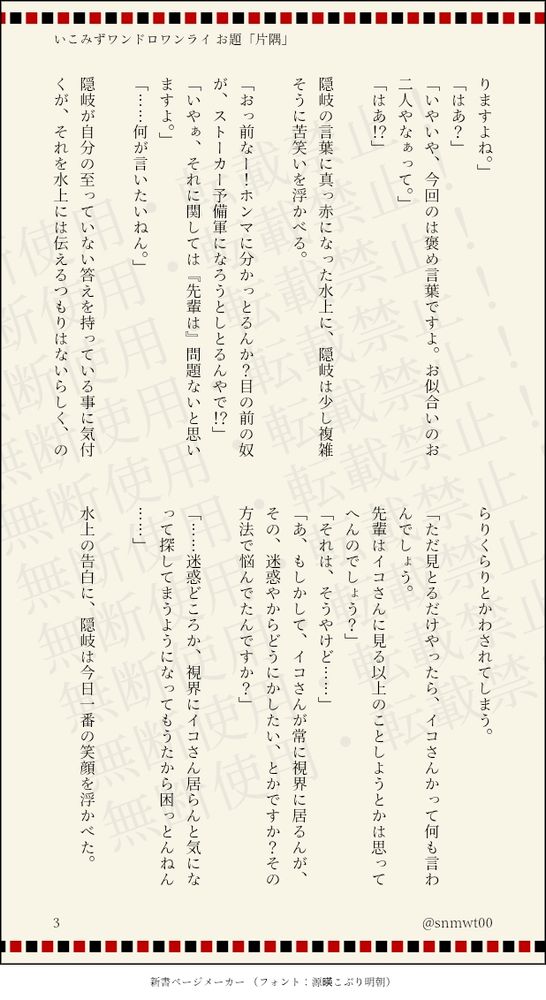 いこみずワンドロワンライ お題「片隅」
りますよね。」
「はあ？」
「いやいや、今回のは褒め言葉ですよ。お似合いのお
二人やなぁって。」
「はあ!?」
隠岐の言葉に真っ赤になった水上に、隠岐は少し複雑
そうに苦笑いを浮かべる。
「おっ前なー！ホンマに分かっとるんか？目の前の奴
が、ストーカー予備軍になろうとしとるんやで!?」
「いやぁ、それに関しては『先輩は』問題ないと思い
ますよ。」
「……何が言いたいねん。」
隠岐が自分の至っていない答えを持っている事に気付
くが、それを水上には伝えるつもりはないらしく、の
らりくらりとかわされてしまう。
「ただ見とるだけやったら、イコさんかって何も言わ
んでしょう。
先輩はイコさんに見る以上のことしようとかは思って
へんのでしょう？」
「それは、そうやけど……」
「あ、もしかして、イコさんが常に視界に居るんが、
その、迷惑やからどうにかしたい、とかですか？その
方法で悩んでたんですか？」
「……迷惑どころか、視界にイコさん居らんと気にな
って探してまうようになってもうたから困っとんねん
……」
水上の告白に、隠岐は今日一番の笑顔を浮かべた。
3
@snmwt00
新書ページメーカー（フォント：源暎こぶり明朝）
無断使用・転載禁止！
無断使用・転載禁止！
無断使用・転載禁止！
無断使用・転載禁止！
無断使用・転載禁止！
無断使用・転載禁止
無断使用・転載禁